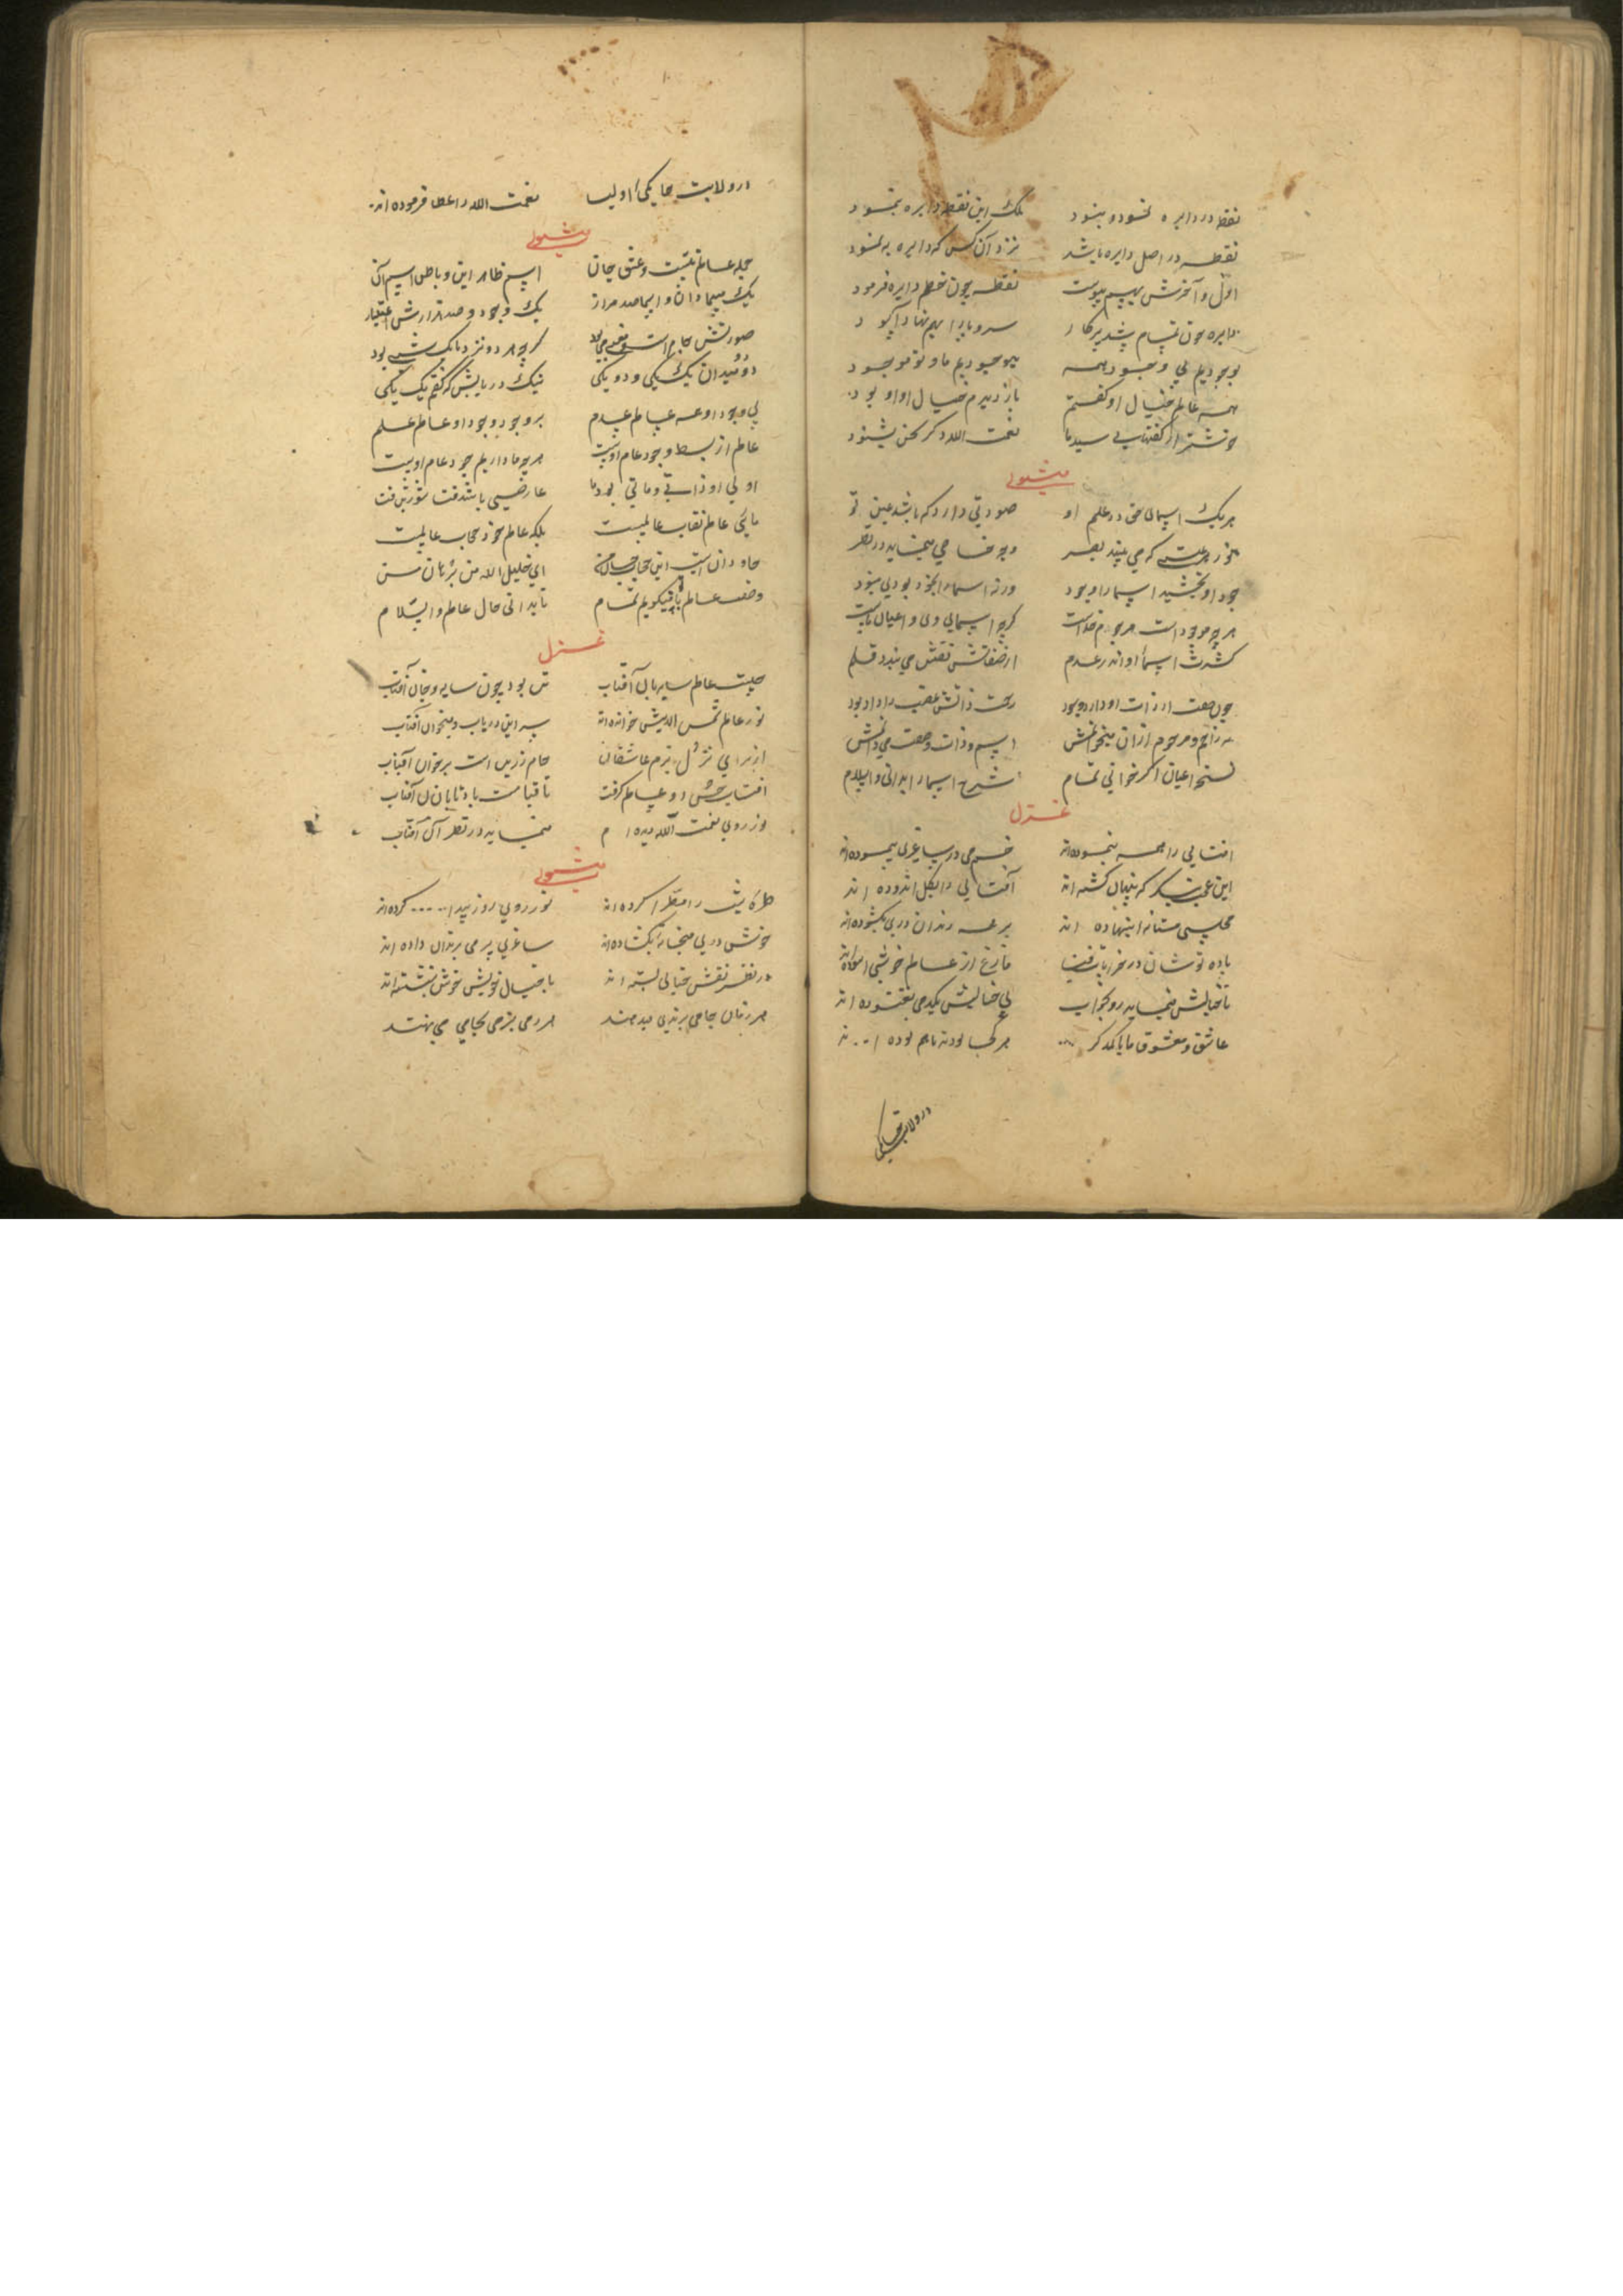 نقطه در دایره نمود و نبود بلک این نقطه دایره بنمود
نقطه در اصل دایره باشد نزد آن کس که دایره پیمود
اول و آخرش بهم پیوست نقطه چون ختم دایره فرمود
دایره چون تمام شد پرکار سر و پا را بهم نهاد آسود
بوجودیم بی وجود همه بیوجودیم ما و تو موجود
همه عالم خیال او گفتم باز دیدم خیال او او بود
خوشتر از گفتهای سید ما نعمت الله دکر سخن نشنود
مثنوی
هر یک اسمای حق در علم او صورتی دارد که باشد عین تو
نور می بیند بصر وجه خاصی مینماید در نظر
جود او بخشید اسما را وجود ورنه اسما را بخود بودی نبود
هر چه موجود است مرحوم خداست کرچه اسمایی وی و اعیان ماست
کثرت اسما او اندر عدم از صفاتش نقش می بندد قلم
چون صفت از ذات او دارد وجود رحمت ذاتش غضب را داد بود
راحم و مرحوم از آن میخوانمش اسم و ذات و صفت می دانمش
نسخه اعیان اکر خوانی تمام شرح اسما را بدانی والسلام
غزل
افتابی را همه بنموده‌اند خم می در ساغری پیموده‌اند
این عجب بنکر که پنهان کشته اند آفتابی را بکل اندوده اند
مجلسی مستانه بنهاده اند بر همه رندان دری بکشوده‌اند
باده نوشان در خرابات فنا فارغ از عالم خوشی آسوده‌اند
تا خیالش مینماید رو بخواب بی خیالش یکدمی نغنوده اند
عاشق و معشوق ما با یکدکر هر کجا بودند باهم بوده اند
در ولایت جایکی
در ولایت جایکی اولیا نعمت الله را عطا فرموده اند
مثنوی
جمله عالم تنست و عشق جان اسم ظاهر این و باطن اسم آن
یک مسما دان و اسما صد هزار یک وجود و صد هزارش اعتبار
صورتش جام است و معنی می بود کرچه هر دو نزد ما یک شی بود
دو نمیدان یک یکی و دو یکی نیک دریابش که گفتم یک یکی
بی وجود او همه عالم عدم بر وجود وجود او عالم علم
عالم از بسط وجود عام اوست هرچه ما داریم جود عام اوست
او لی او ذاتی و مائی بود ما عارضی باشد
مائی عالم نقاب عالمست بلکه عالم خود حجاب عالمست
جاودان است این حجاب جان من ای خلیل الله من برهان من
وصف عالم با تو میکویم تمام تا بدانی حال عالم والسلام
غزل
چیست عالم سایه‌بان آفتاب تن بود چون سایه و جان آفتاب
نور عالم شمس الدینش خوانده اند سر این دریاب و میخوان آفتاب
از برای نزل بزم عاشقان جام زرین است بر خوان آفتاب
افتاب حسن او عالم کرفت تا قیامت باد تابان آن آفتاب
نور روی نعمت الله دیده ام مینماید در نظر آن آفتاب
مثنوی
طره شب را مطرا کرده اند نور روی روز پیدا کرده‌اند
خوش در میخانه بکشاده‌اند ساغری پر می برندان داده اند
در نظر نقش خیالی بسته اند با خیال خویش خوش بنشسته اند
هر زمان جامی برندی میدهند هر دمی بزمی بجامی می نهند